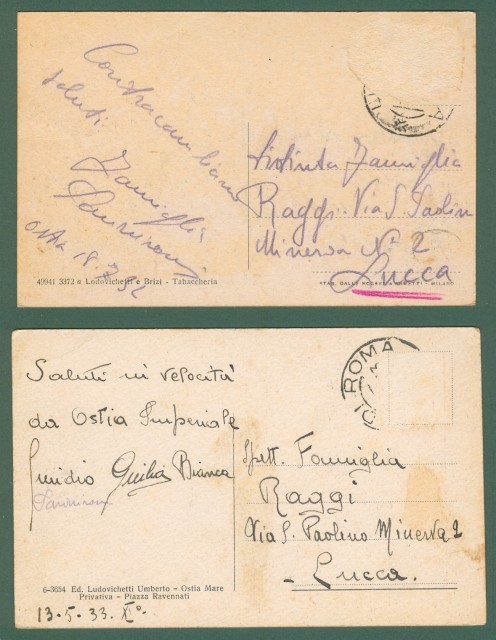 Contraccambiamo
saluti
Famiglia
Ostia 18.7.32
49941 3372 a Lodovichetti e Brizi - Tabaccheria
Distinta Famiglia
Raggi. Via S. Paolino
Minerva N° 2
Lucca
STAB. DALLE NOGARE E ARMETTI - MILANO
Saluti in velocità
da Ostia Imperiale
Emidio Giulia Bianca
6-3654 Ed. Ludovichetti Umberto - Ostia Mare
Privativa - Piazza Ravennati
13-5-33. XIº
ROMA
Spett. Famiglia
Raggi
Via S. Paolino Minerva 2
Lucca.